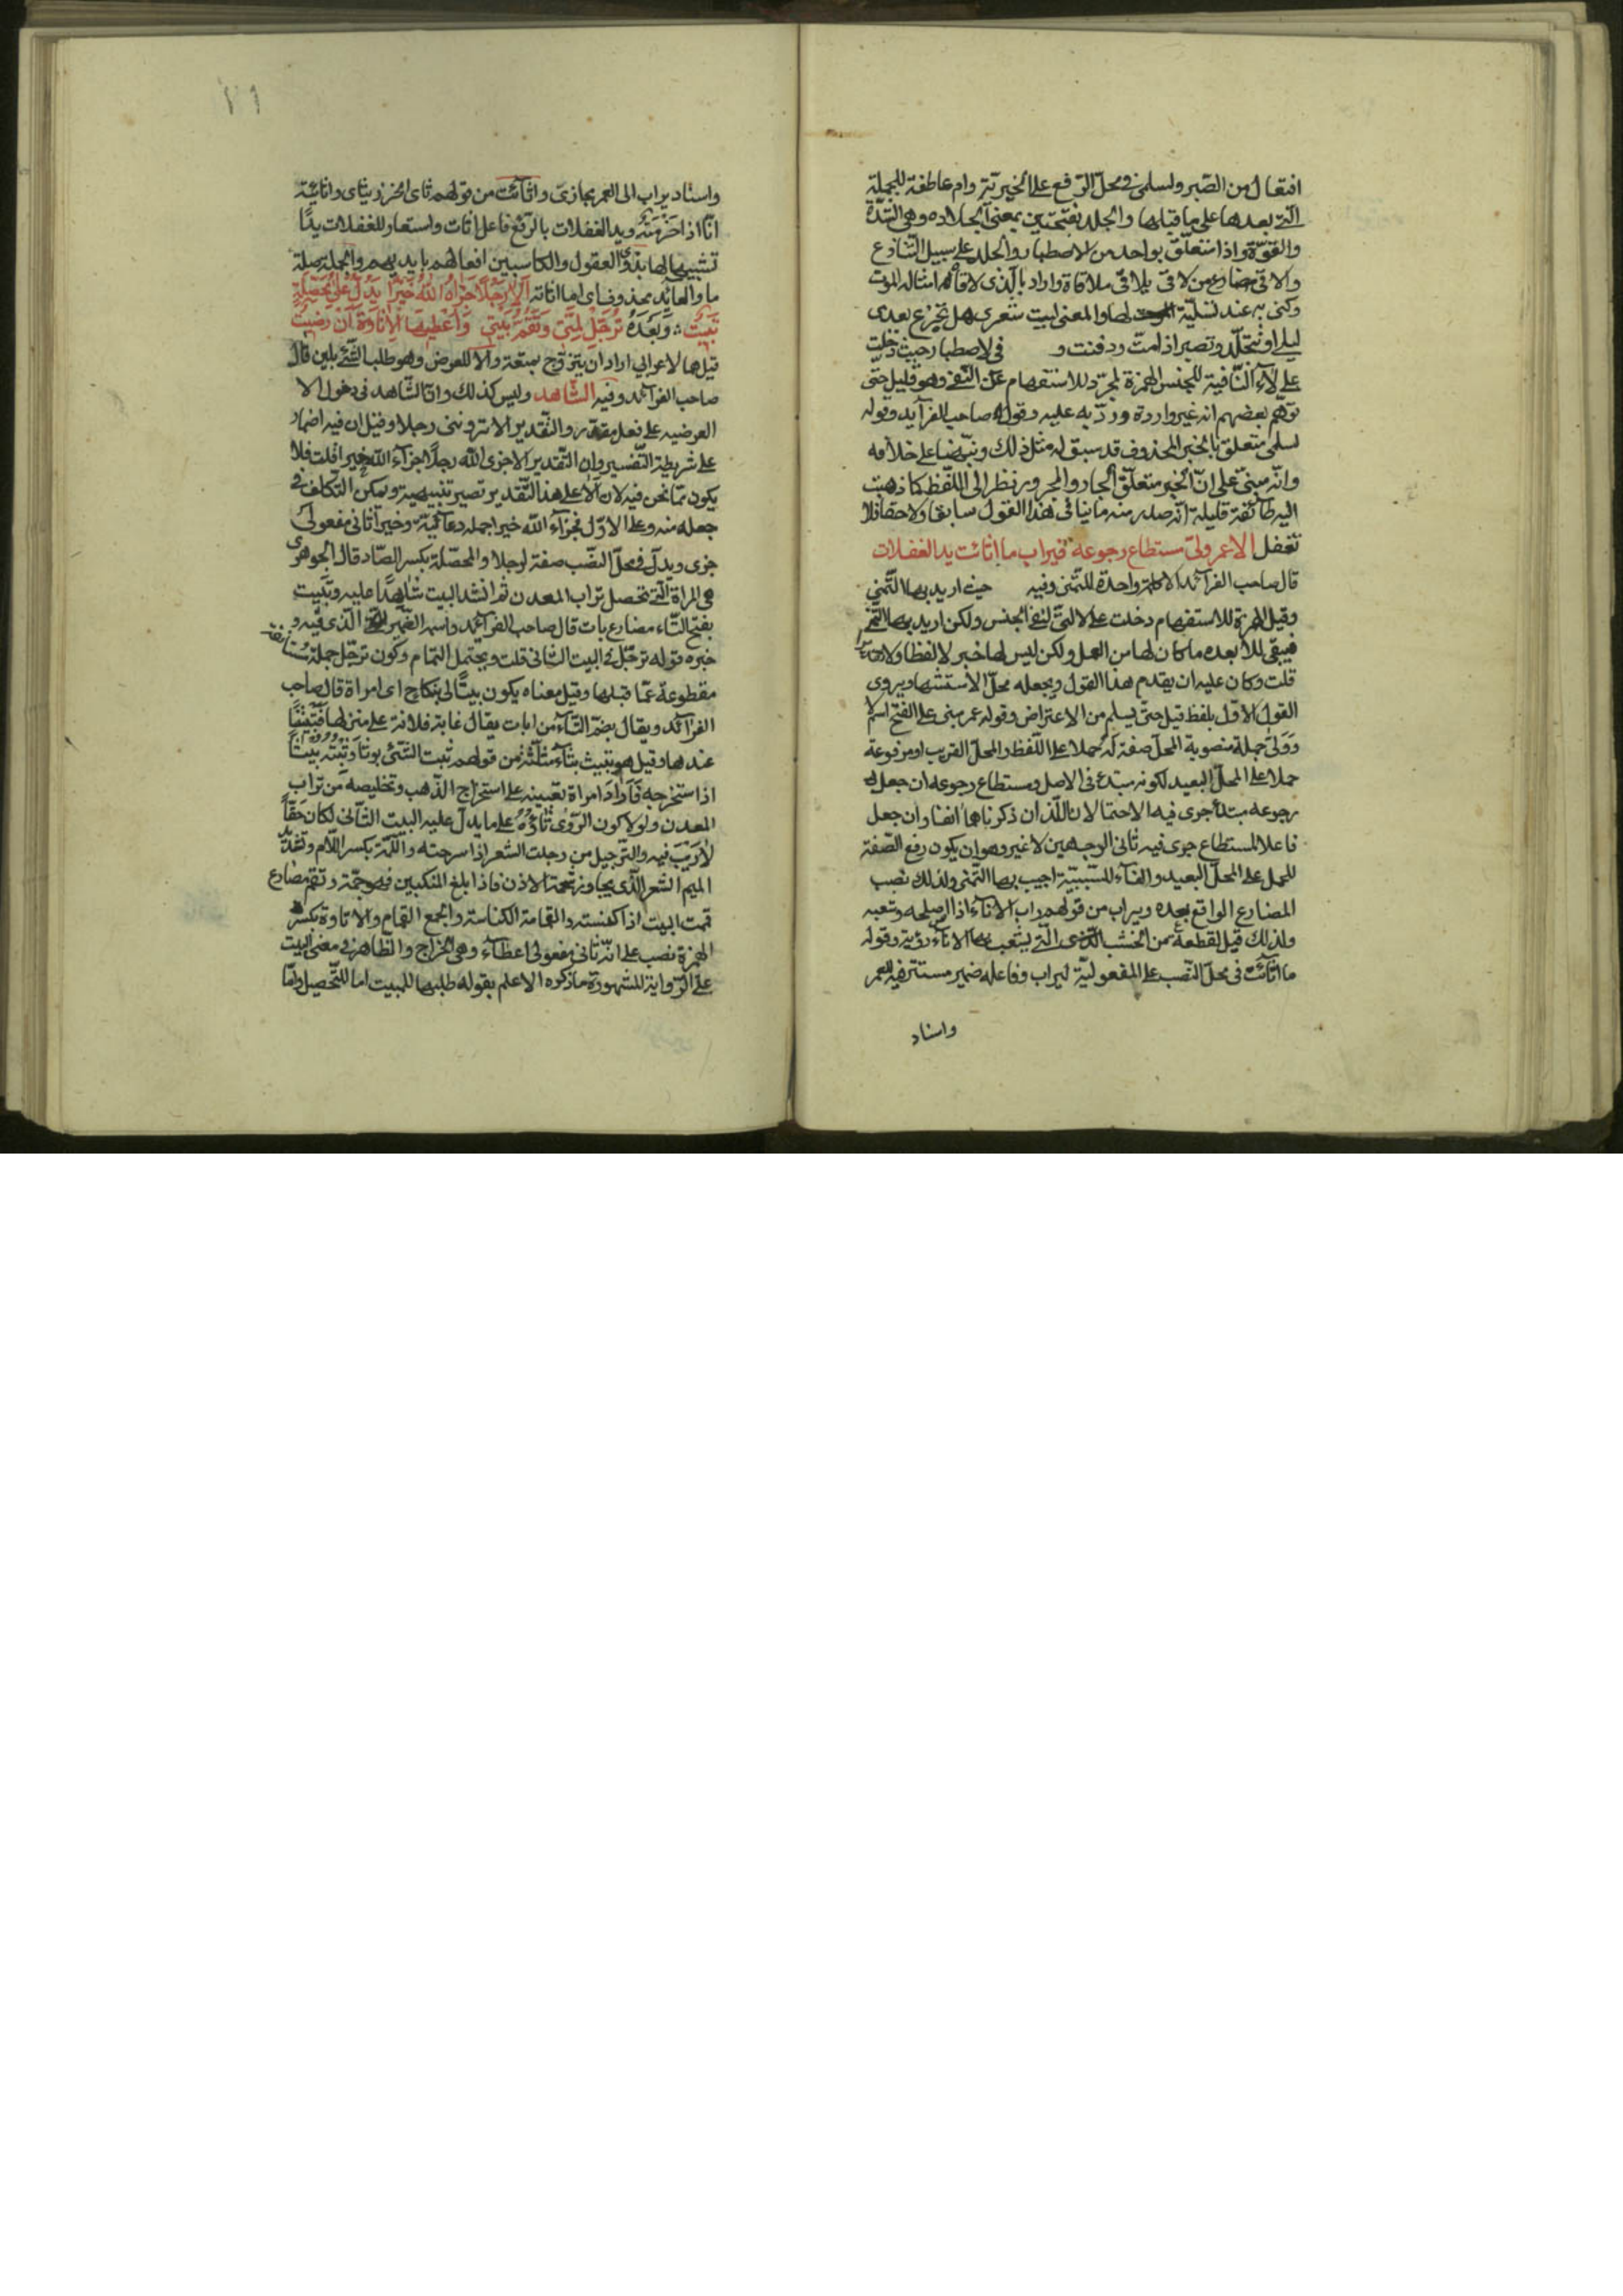 افتعال من الصبر ولسلمى في محل الرفع على الخبرية وام عاطفة للجملة
التي بعدها على ما قبلها والجلد بفتحتين بمعنى الجلادة وهي الشدة
والقوة واذا متعلق بواحد من الاصطبار والجلد على سبيل التنازع
والاقي مضارع من لاقى يلاقي ملاقاة واراد بالذي لاقاه امثاله الموت
وكنى به عند تسلية لها والمعنى ليت شعري هل تجزع بعدي
ليلى او تتجلد وتصبر اذا مت ودفنت و في لا اصطبار حيث دخلت
على لاء النافية للجنس الهمزة لمجرد للاستفهام عن النفي وهو قليل حتى
توهم بعضهم انه غير واردة ورد به عليه وقول صاحب الفرآيد وقوله
لسلمى متعلق بالخبر المحذوف قد سبق له مثل ذلك ونبهنا على خلافه
وانه مبني على ان الخبر متعلق الجار والمجرور نظر الى اللفظ كما ذهبت
اليه طآئفة قليلة انه صدر منه ما ينافي هذا القول سابقا ولاحقا فلا
تغفل الا عمر ولى مستطاع رجوعه فيراب ما اثات يد الغفلات
قال صاحب الفرآئد الا كلمة واحدة للتمني وفيه حيث اريد بها التمني
وقيل الهمزة للاستفهام دخلت على لا التي لنفي الجنس ولكن اريد بها التمني
فيبقى للا بعده ما كان لها من العمل ولكن ليس لها خبر لا لفظا ولا تقديرا
قلت وكان عليه ان يقدم هذا القول ويجعله محل الاستشهاد ويروى
القول الاول بلفظ قيل حتى يسلم من الاعتراض وقوله عمر مبني على الفتح اسم لا
وولى جملة منصوبة المحل صفة له حملا على اللفظ والمحل القريب او مرفوعة
حملا على المحل البعيد لكونه مبتدء في الاصل ومستطاع رجوعه ان جعل
رجوعه مبتدأ جرى فيه الاحتمالان اللذان ذكرناهما انفا وان جعل
فاعلا لمستطاع جرى فيه ثاني الوجهين لا غير وهو ان يكون رفع الصفة
للحمل على المحل البعيد والفآء للسببية اجيب بها التمني ولذلك نصب
المضارع الواقع بعده ويراب من قولهم راب الاناء اذا اصلحه وشعبه
ولذلك قيل لقطعة من الخشب التي يشعب بها الاناء رؤبة وقوله
ما اثآئت في محل النصب على المفعولية ليراب وفاعله ضمير مستتر فيه للعمر
واسناد
واسناد يراب الى العمر مجازي واثآئت من قولهم ثاى الخرز يثاى واثائيته
انا اذا خرمته ويد الغفلات بالرفع فاعل اثات واستعار للغفلات يدا
تشبيها لها بذوي العقول والكاسبين افعالهم بايديهم والجملة صلة
ما والعائد محذوف اي ما اثاته الا رجلا جزاه الله خيرا يدل على محصلة
تبيت وبعده ترجل لمتي وتقم بيتي واعطيها الاتاوة ان رضيت
قيل هما لاعرابي اراد ان يتزوج بمتعة والا للعرض وهو طلب الشئ بلين قال
صاحب الفرآئد وفيه الشاهد وليس كذلك وانما الشاهد في دخول الا
العرضيه على فعل مقدر والتقدير الا ترونني رجلا وقيل ان فيه اضمار
على شريطة التفسير وان التقدير الا جزى الله رجلا جزآء الله خيرا قلت فلا
يكون مما نحن فيه لان الا على هذا التقدير تصير تنبيهية ويمكن التكلف في
جعله منه وعلى الاول فجزآء الله خيرا جملة دعآئية وخيرا ثاني مفعولي
جزى ويدل في محل النصب صفة لرجلا والمحصلة بكسر الصاد قال الجوهري
هي المراة التي تحصل تراب المعدن ثم انشد البيت شاهدا عليه وتبيت
بفتح التاء مضارع بات قال صاحب الفرآئد واسمه الضمير الذي فيه و
خبره قوله ترجل في البيت الثاني قلت ويحتمل التمام وكون ترجل جملة مستأنفة
مقطوعة عما قبلها وقيل معناه يكون بيتا لي بنكاح اي امراة قال صاحب
الفرائد ويقال بضم التاء من ابات يقال
عندها وقيل هو تبيث بثاء مثلثة من قولهم
اذا استخرجه فاراد امراة تعينه على استخراج الذهب وتخليصه من تراب
المعدن ولولا كون الروى تاؤه على ما يدل عليه البيت الثاني لكان حقا
لا ريب فيه والترجيل من رجلت الشعر اذا سرحته واللمة بكسر اللام وتشديد
الميم الشعر الذي يجاوز شحمة الاذن فاذا بلغ المنكبين فهو جمة وتقم مضارع
قمت البيت اذا كنسته والقمامة الكناسة والجمع القمام والاتاوة بكسر
الهمزة نصب على انه ثاني مفعولي اعطآء وهي الخراج والظاهر في معنى البيت
على الرواية المشهورة ما ذكره الاعلم بقوله طلبها للمبيت اما للتحصيل واما